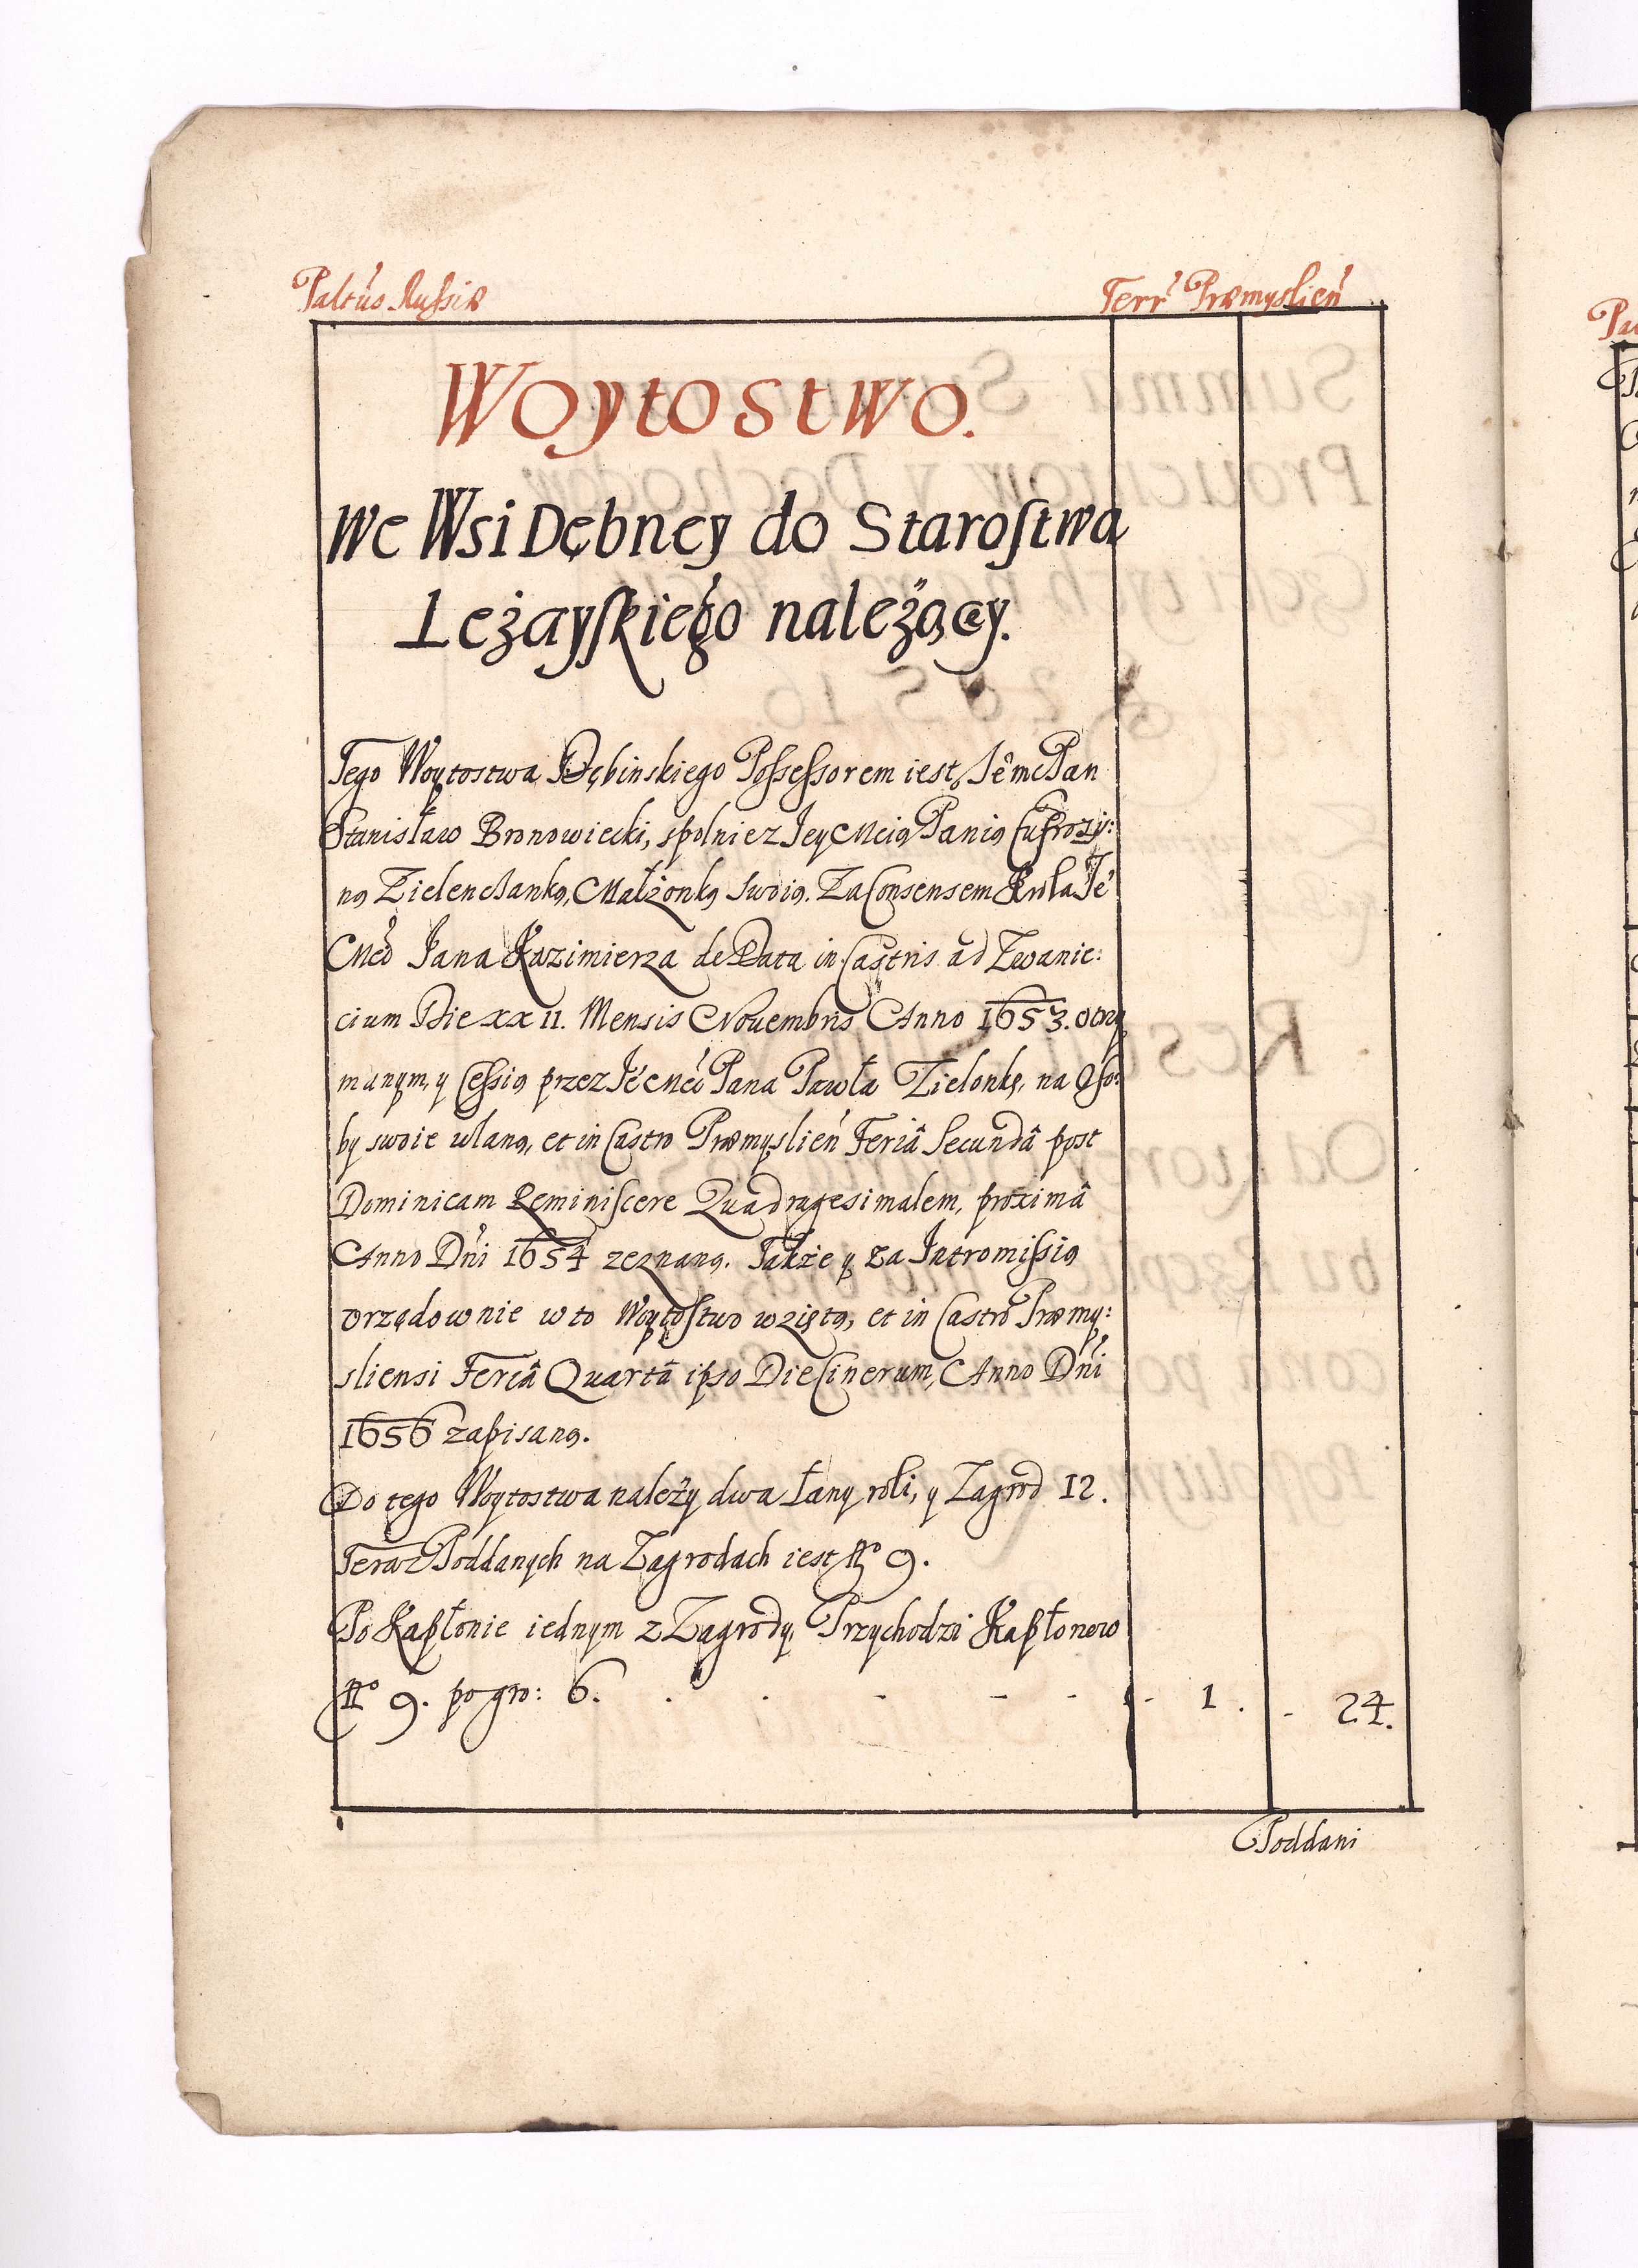 Paltûs Russiæ
Terr Præmyslień
Woytostwo.
We Wsi Dębney do Starostwa
Leżayskiego należącey.
Tego Woytostwa Dębinskiego Possessorem iest, Jemc Pan
Stanisław Bronowiecki, spolnie z Jey Mcią Panią Eufrozy:
ną Zielenclanką, Małżonką swoią. Za Consensem Krola Je
Mci Jana Kazimierza de Data in Castris ad Zwanie:
cium Die XXII. Mensis Nouembris Anno 1653. otrzy
manym, y Cessią przez Je Mci Pana Pawła Zielonkę, na Oso:
by swoie wlaną, et in Castro Præmyslień Feriâ Secundâ post
Dominicam Reminiscere Quadragesimalem, proximâ
Anno Dni 1654 zeznaną. Także y za Intromissią
vrzędownie w to Woytostwo wziętą, et in Castro Præmy:
sliensi Feriâ Quartâ ipso Die Cinerum, Anno Dni
1656 zapisaną.
Do tego Woytostwa należy dwa łany roli, y Zagrod 12.
Teraz Poddanych na Zagrodach iest Nº 9.
Po Kapłonie iednym z Zagrody, Przychodzi Kapłonow
Nº 9. po gro: 6. . . - - - - 1. - 24.
Poddani